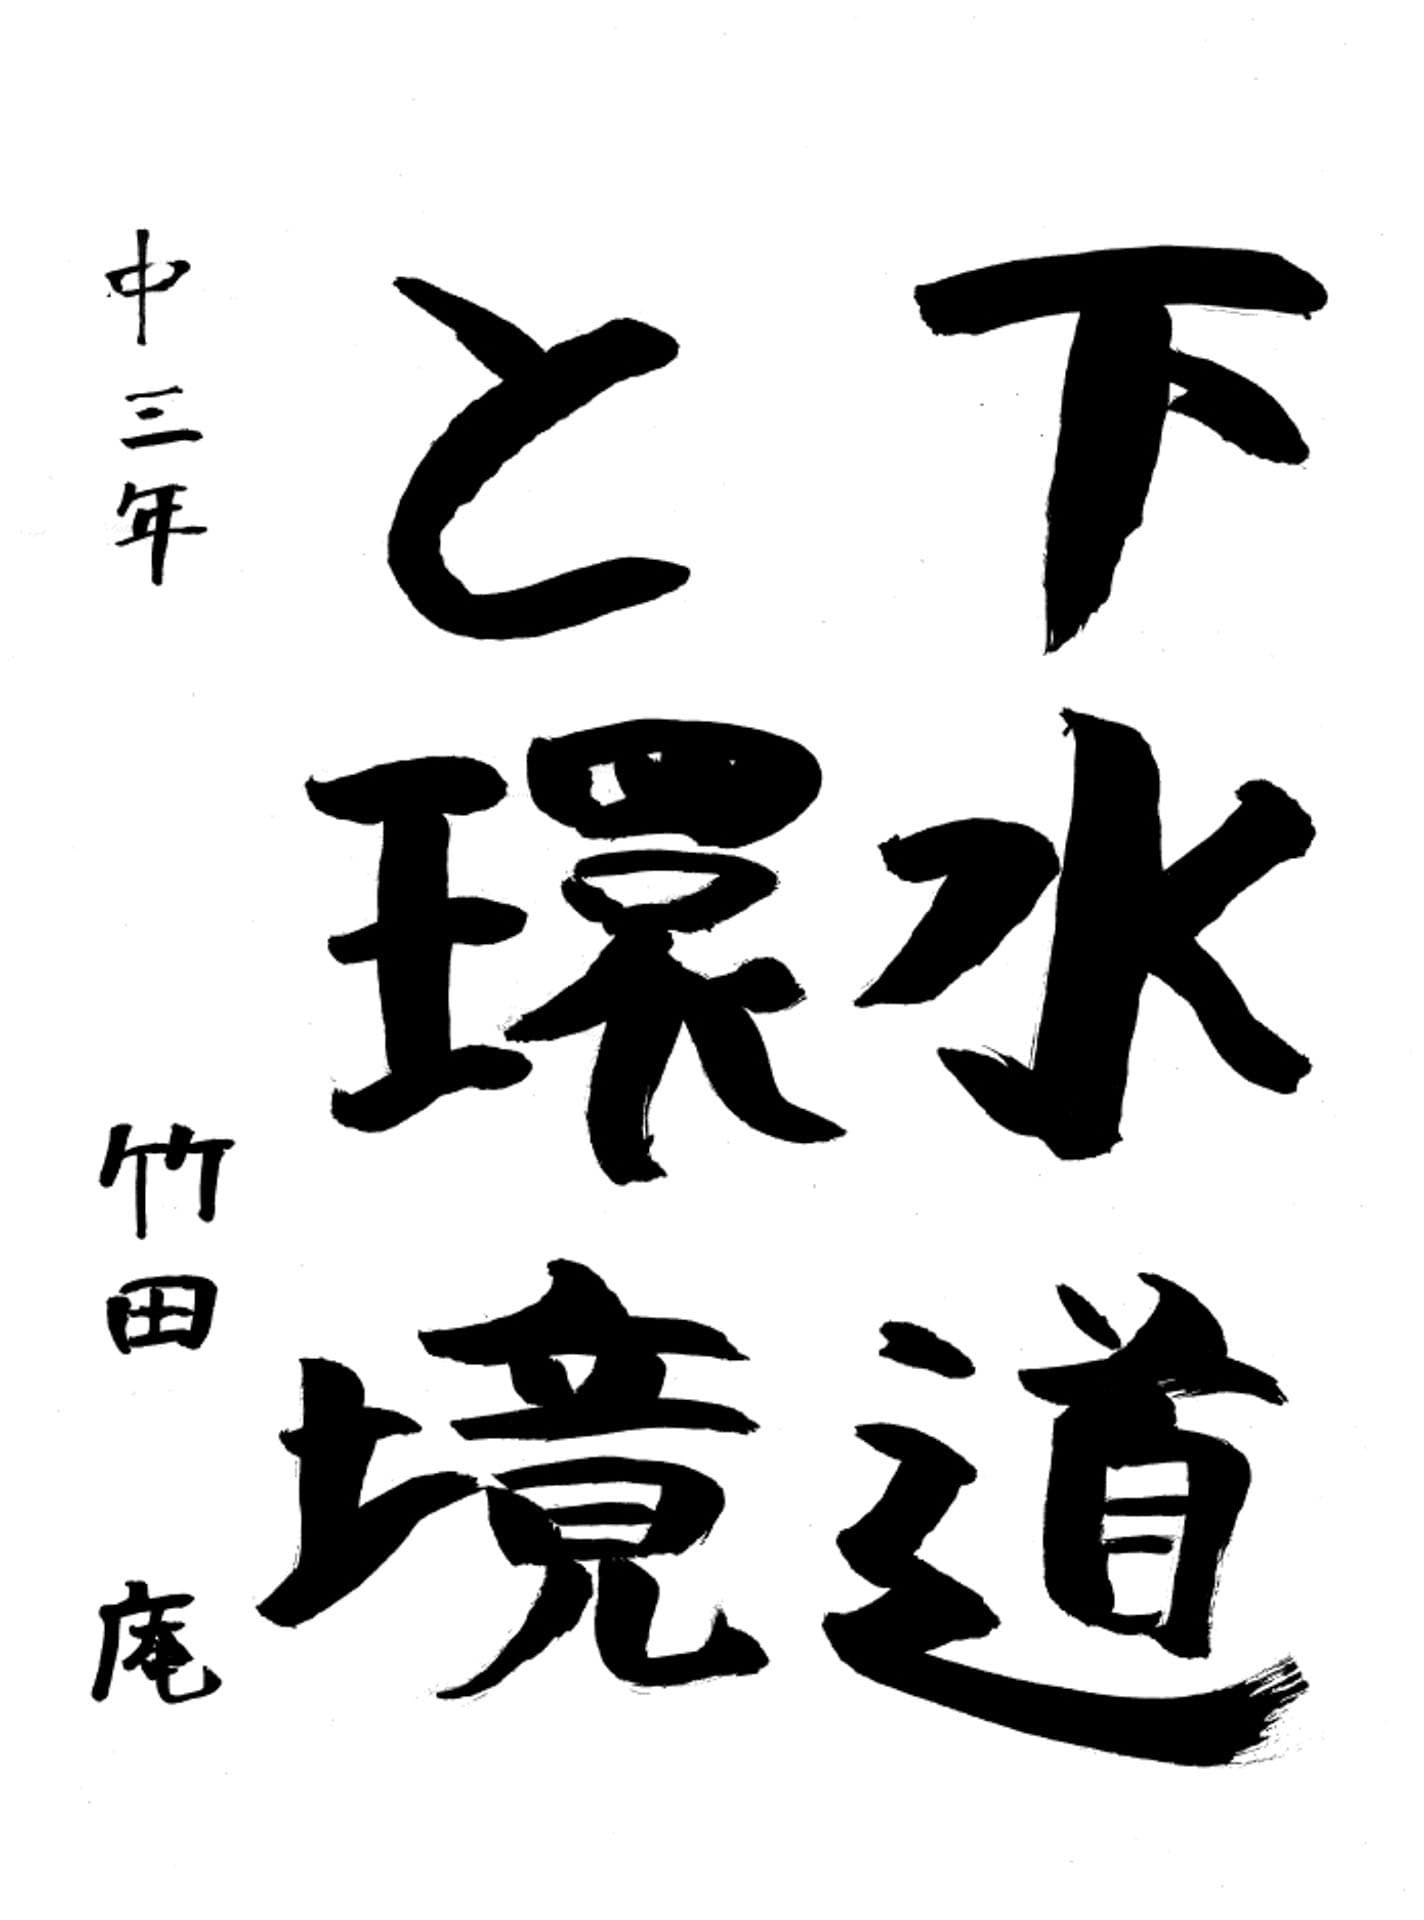 下水道
と環境
中三年 竹田 庵